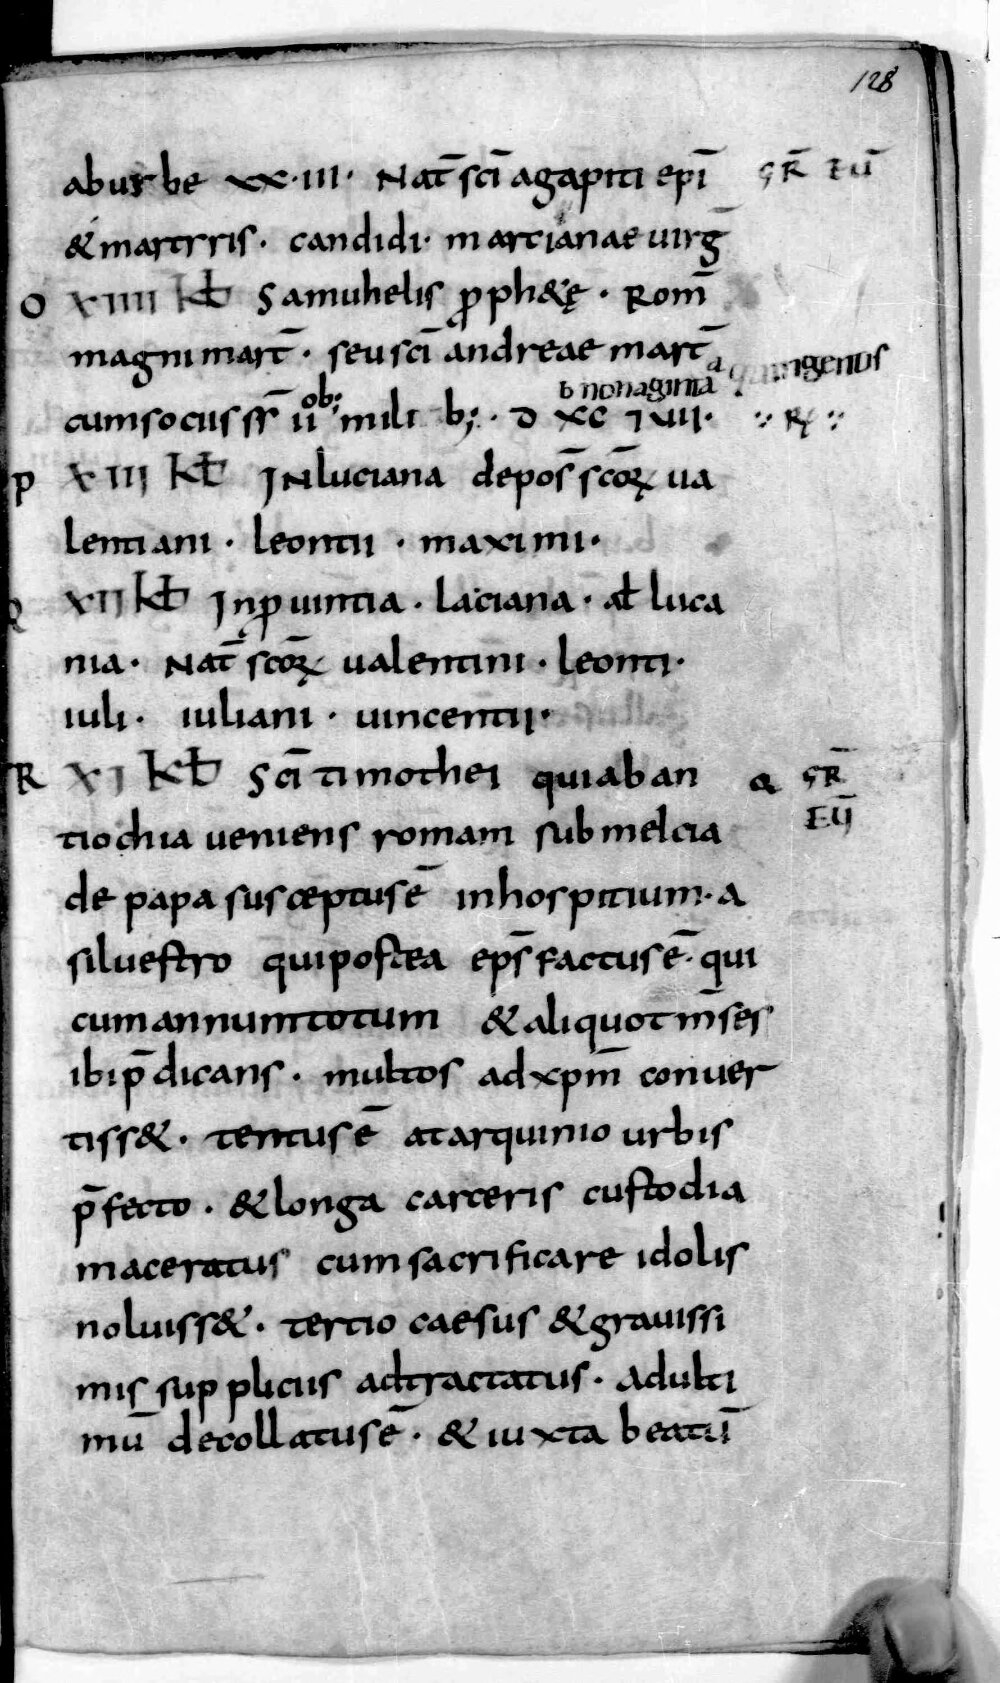 128
aburbe xx·iii· Nat̄ sc̄i agapiti ep̄i   GR̄ EŪ
& martyris· candidi· marcianae uirḡ
O xiiii kƚ Samuhelis ꝓph&ę· Rom̄
magni mart̄· seu sc̄i andreae mart̄
b nonaginta quingentos
cum sociis sī ii ob; mili b;· D xc 7 vii· R
P xiii kƚ IN luciana depos̄ sc̄oꝝ ua
lentiani· leontii· maximi·
Q xii kƚ In ꝓuintia· laciana· aƚ luca
nia· Nat̄ sc̄oꝝ ualentini· leonti·
iuli· iuliani· uincentii·
R xi kƚ Sc̄i timothei qui ab an   a GR̄
EŪ
tiochia ueniens romam sub melcia
de papa susceptus ē in hospitium· a
siluestro qui postea ep̄s factus ē· qui
cum annum totum & aliquot m̄ses
ibi p̄dicans· multos ad xp̄m conuer
tiss&· tentus ē a tarquinio urbis
p̄fecto· & longa carceris custodia
maceratus cum sacrificare idolis
noluiss&· tertio caesus & grauissi
mis suppliciis adtractatus· ad ulti
mū decollatus ē· & iuxta beatū